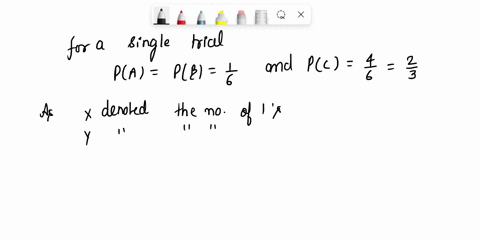 for a single trial
P(A) = P(B) = 1/6 and P(C) = 4/6 = 2/3
As x denoted the no. of 1's
y " " "